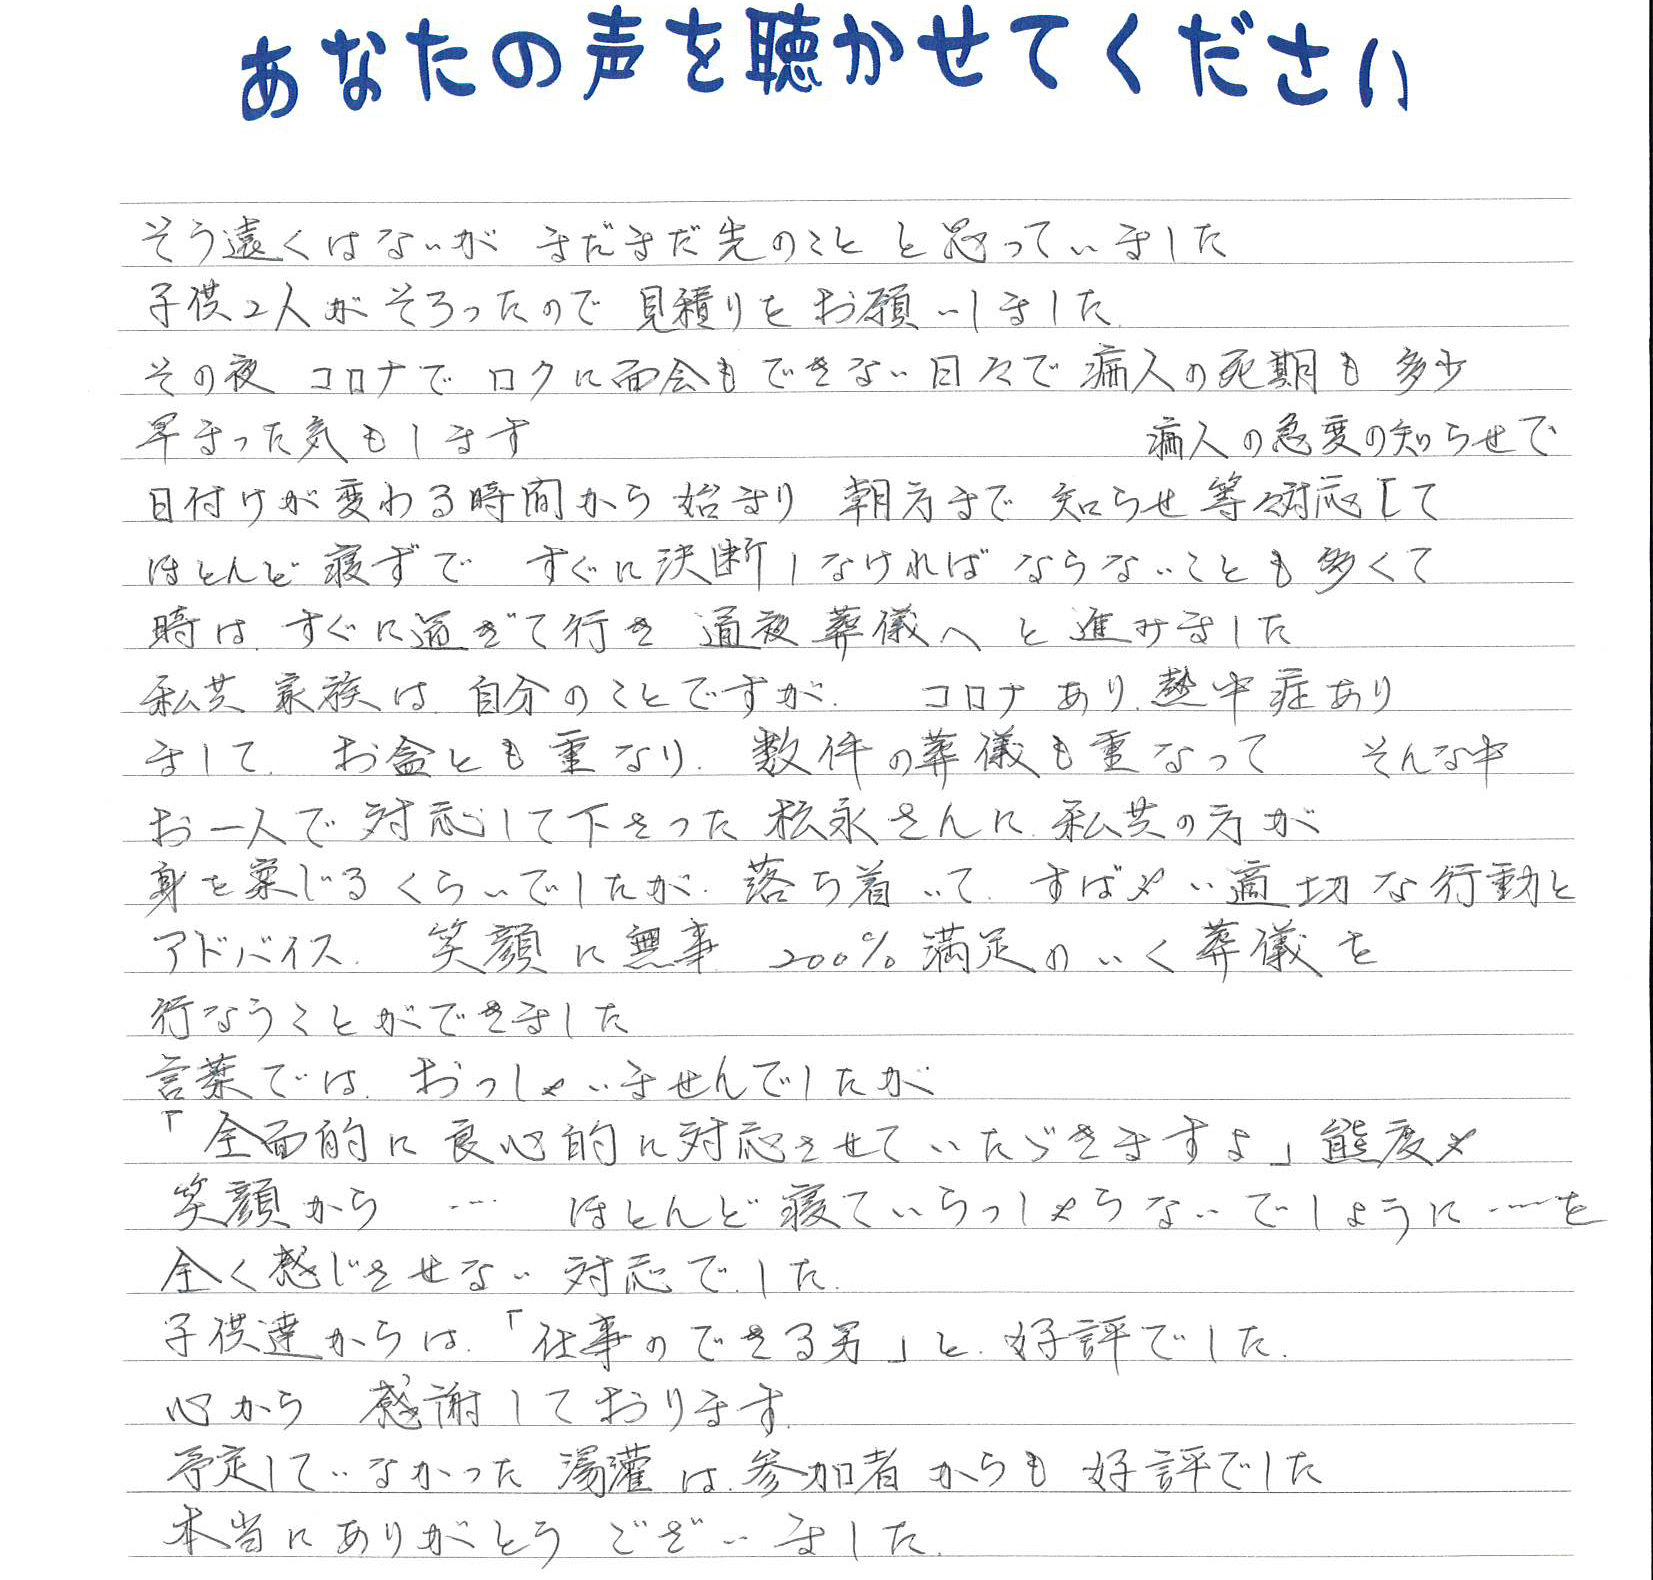 あなたの声を聴かせてください
そう遠くはないが まだまだ先のこと と思っていました
子供2人がそろったので 見積りを お願いしました
その夜 コロナで ロクに面会もできない日々で 病人の死期も 多少
早まった気もします 病人の急変の知らせで
日付けが変わる時間から 始まり 朝方まで 知らせ等々対応して
ほとんど 寝ずで すぐに決断しなければ ならないことも多くて
時は すぐに過ぎて行き 通夜葬儀へ と 進みました
私共 家族は 自分のことですが. コロナ あり.熱中症あり
まして. お盆とも重なり. 数件の葬儀も重なって そんな中
お一人で 対応して下さった 松永さんに.私共の方が
身を案じるくらいでしたが.落ち着いて. すばやい適切な行動と
アドバイス. 笑顔に無事 200% 満足のいく葬儀を
行なうことができました
言葉では.おっしゃいませんでしたが
「全面的に良心的に対応させていただきますよ」態度や
笑顔から …. ほとんど寝ていらっしゃらないでしょうに……を
全く感じさせない 対応でした.
子供達からは.「仕事のできる男」と.好評でした.
心から 感謝しております.
予定していなかった 湯灌は.参加者からも 好評でした
本当にありがとう ございました.